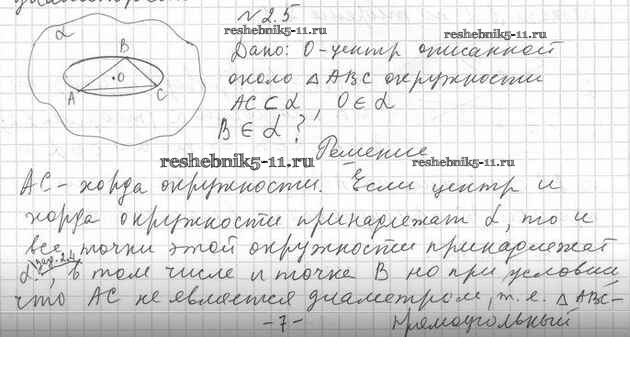 № 2.5
reshebnik5-11.ru
reshebnik5-11.ru
α B O A C
Дано: О-центр описанной
около △ABC окружности
AC⊂α, O∈α
B∈α?
Решение
reshebnik5-11.ru
reshebnik5-11.ru
AC-хорда окружности. Если центр и
хорда окружности принадлежат α, то и
все точки этой окружности принадлежат
зад. 2.4
α, в том числе и точке B но при условии
что AC не является диаметром, т.е. △ABC-
-7- прямоугольный